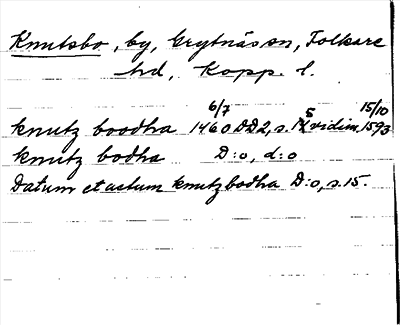 Knutsbo, by, Grytnäs sn, Folkare
hd, Kopp. l.
6/7 5 15/10
knutz boodha 1460 DD2, s. 14, vidim. 1593
knutz bodha D:o, d:o
Datum et actum knutzbodha D:o, s. 15.